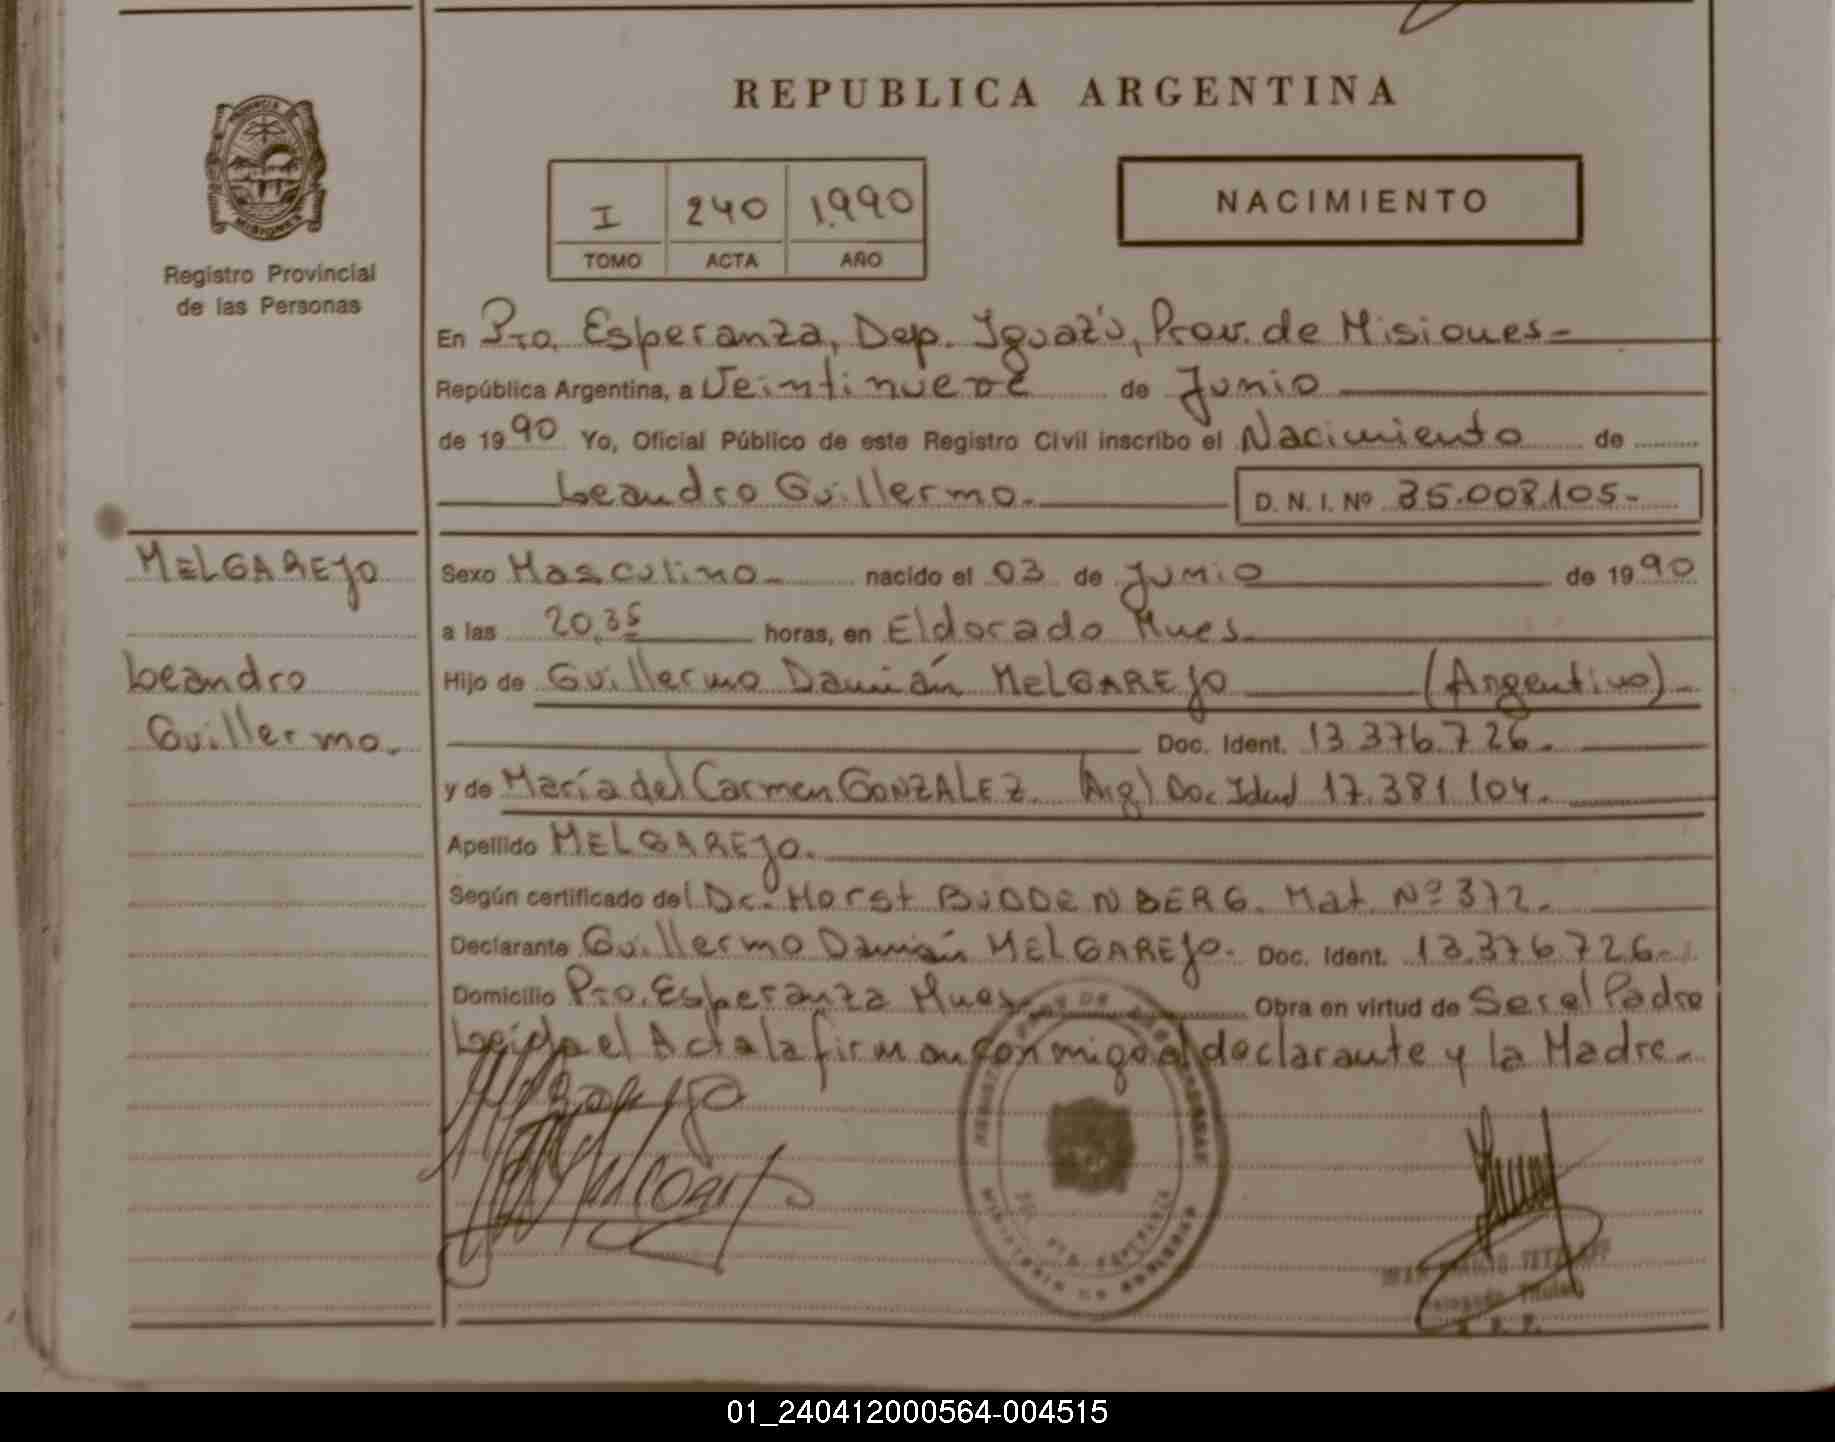 REPUBLICA ARGENTINA
PROVINCIA
MISIONES
Registro Provincial
de las Personas
I 240 1.990
TOMO ACTA AÑO
NACIMIENTO
En Pto. Esperanza, Dep. Iguazú, Prov. de Misiones-
República Argentina, a Veintinueve de Junio
de 1990 Yo, Oficial Público de este Registro Civil inscribo el Nacimiento de
Leandro Guillermo.
D. N. I. Nº 35.008.105-
MELGAREJO
Leandro
Guillermo.
Sexo Masculino- nacido el 03 de Junio de 1990
a las 20,35 horas, en Eldorado Mnes.
Hijo de Guillermo Damián MELGAREJO (Argentino)-
Doc. Ident. 13.376.726.
y de María del Carmen GONZALEZ. (Arg) Doc Idad 17.381.104.
Apellido MELGAREJO.
Según certificado del Dr. Horst BUDDENBERG. Mat. Nº 372.
Declarante Guillermo Damián MELGAREJO. Doc. Ident. 13.376.726-
Domicilio Pto. Esperanza Mnes. Obra en virtud de Ser el Padre
Leída el Acta la firman conmigo el declarante y la Madre.
PTO. ESPERANZA
MINISTERIO DE GOBIERNO
Delegado Titular
01_240412000564-004515